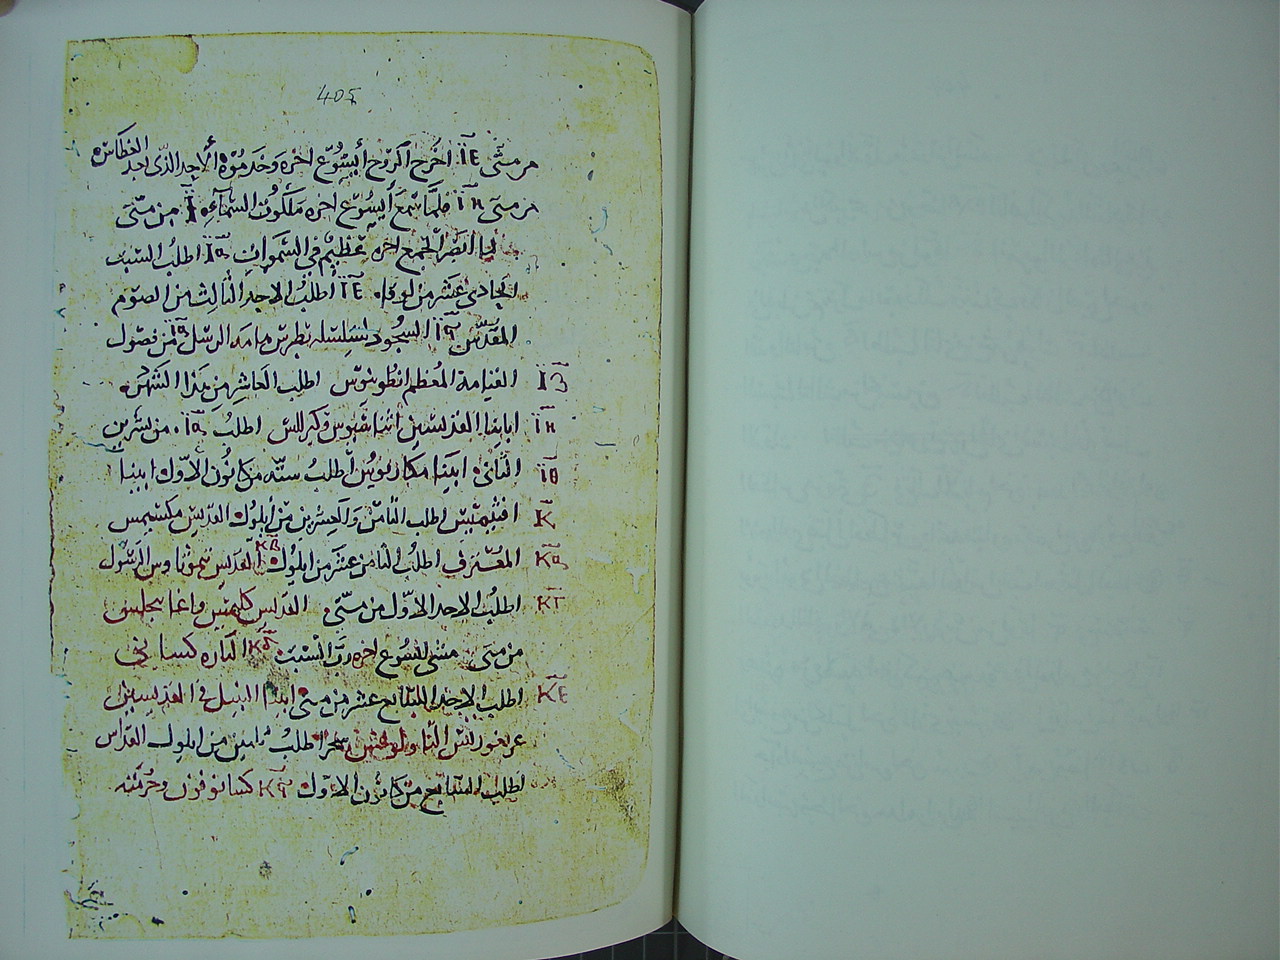 405
من متى ΙΕ اخرج الروح أيسوع اخره وحد موه الأحد الذي بعد الغطاس
من متى ΙΗ فلما سمع أيسوع اخره ملكوت السماء من متى
لما انصر الجمع اخره عظيم في السموات ΙΔ اطلب السبت
الحادي عشر من لوقا ΙΕ اطلب الاحد الثالث من الصوم
المقدس السجود لسلسله بطرس هامة الرسل من فصول
ΙΖ القيامة المعظم انطونيوس اطلب العاشر من هذا الشهر
ΙΗ ابايا القديسين أثناسيوس وكيرللس اطلب من تشرين
ΙΘ الثاني ابينا مكاريوس اطلب ستة من كانون الاول ابينا
Κ افثيميس اطلب الثامن والعشرين من أيلول القديس مكسيمس
ΚΑ المعترف اطلب الثامن عشر من ايلول ΚΒ القديس تيموثاوس الرسول
ΚΓ اطلب الاحد الاول من متى القديس كليمس واغاتنجلس
من متى مشى أيسوع اخره رب السبت ΚΔ الباره كسانى
ΚΕ اطلب الاحد السابع عشر من متى ابينا النبيل في القديسين
غريغوريس سحر اطلب من ايلول القداس
اطلب السابع من كانون الاول ΚϚ كسانوفون وحرمته